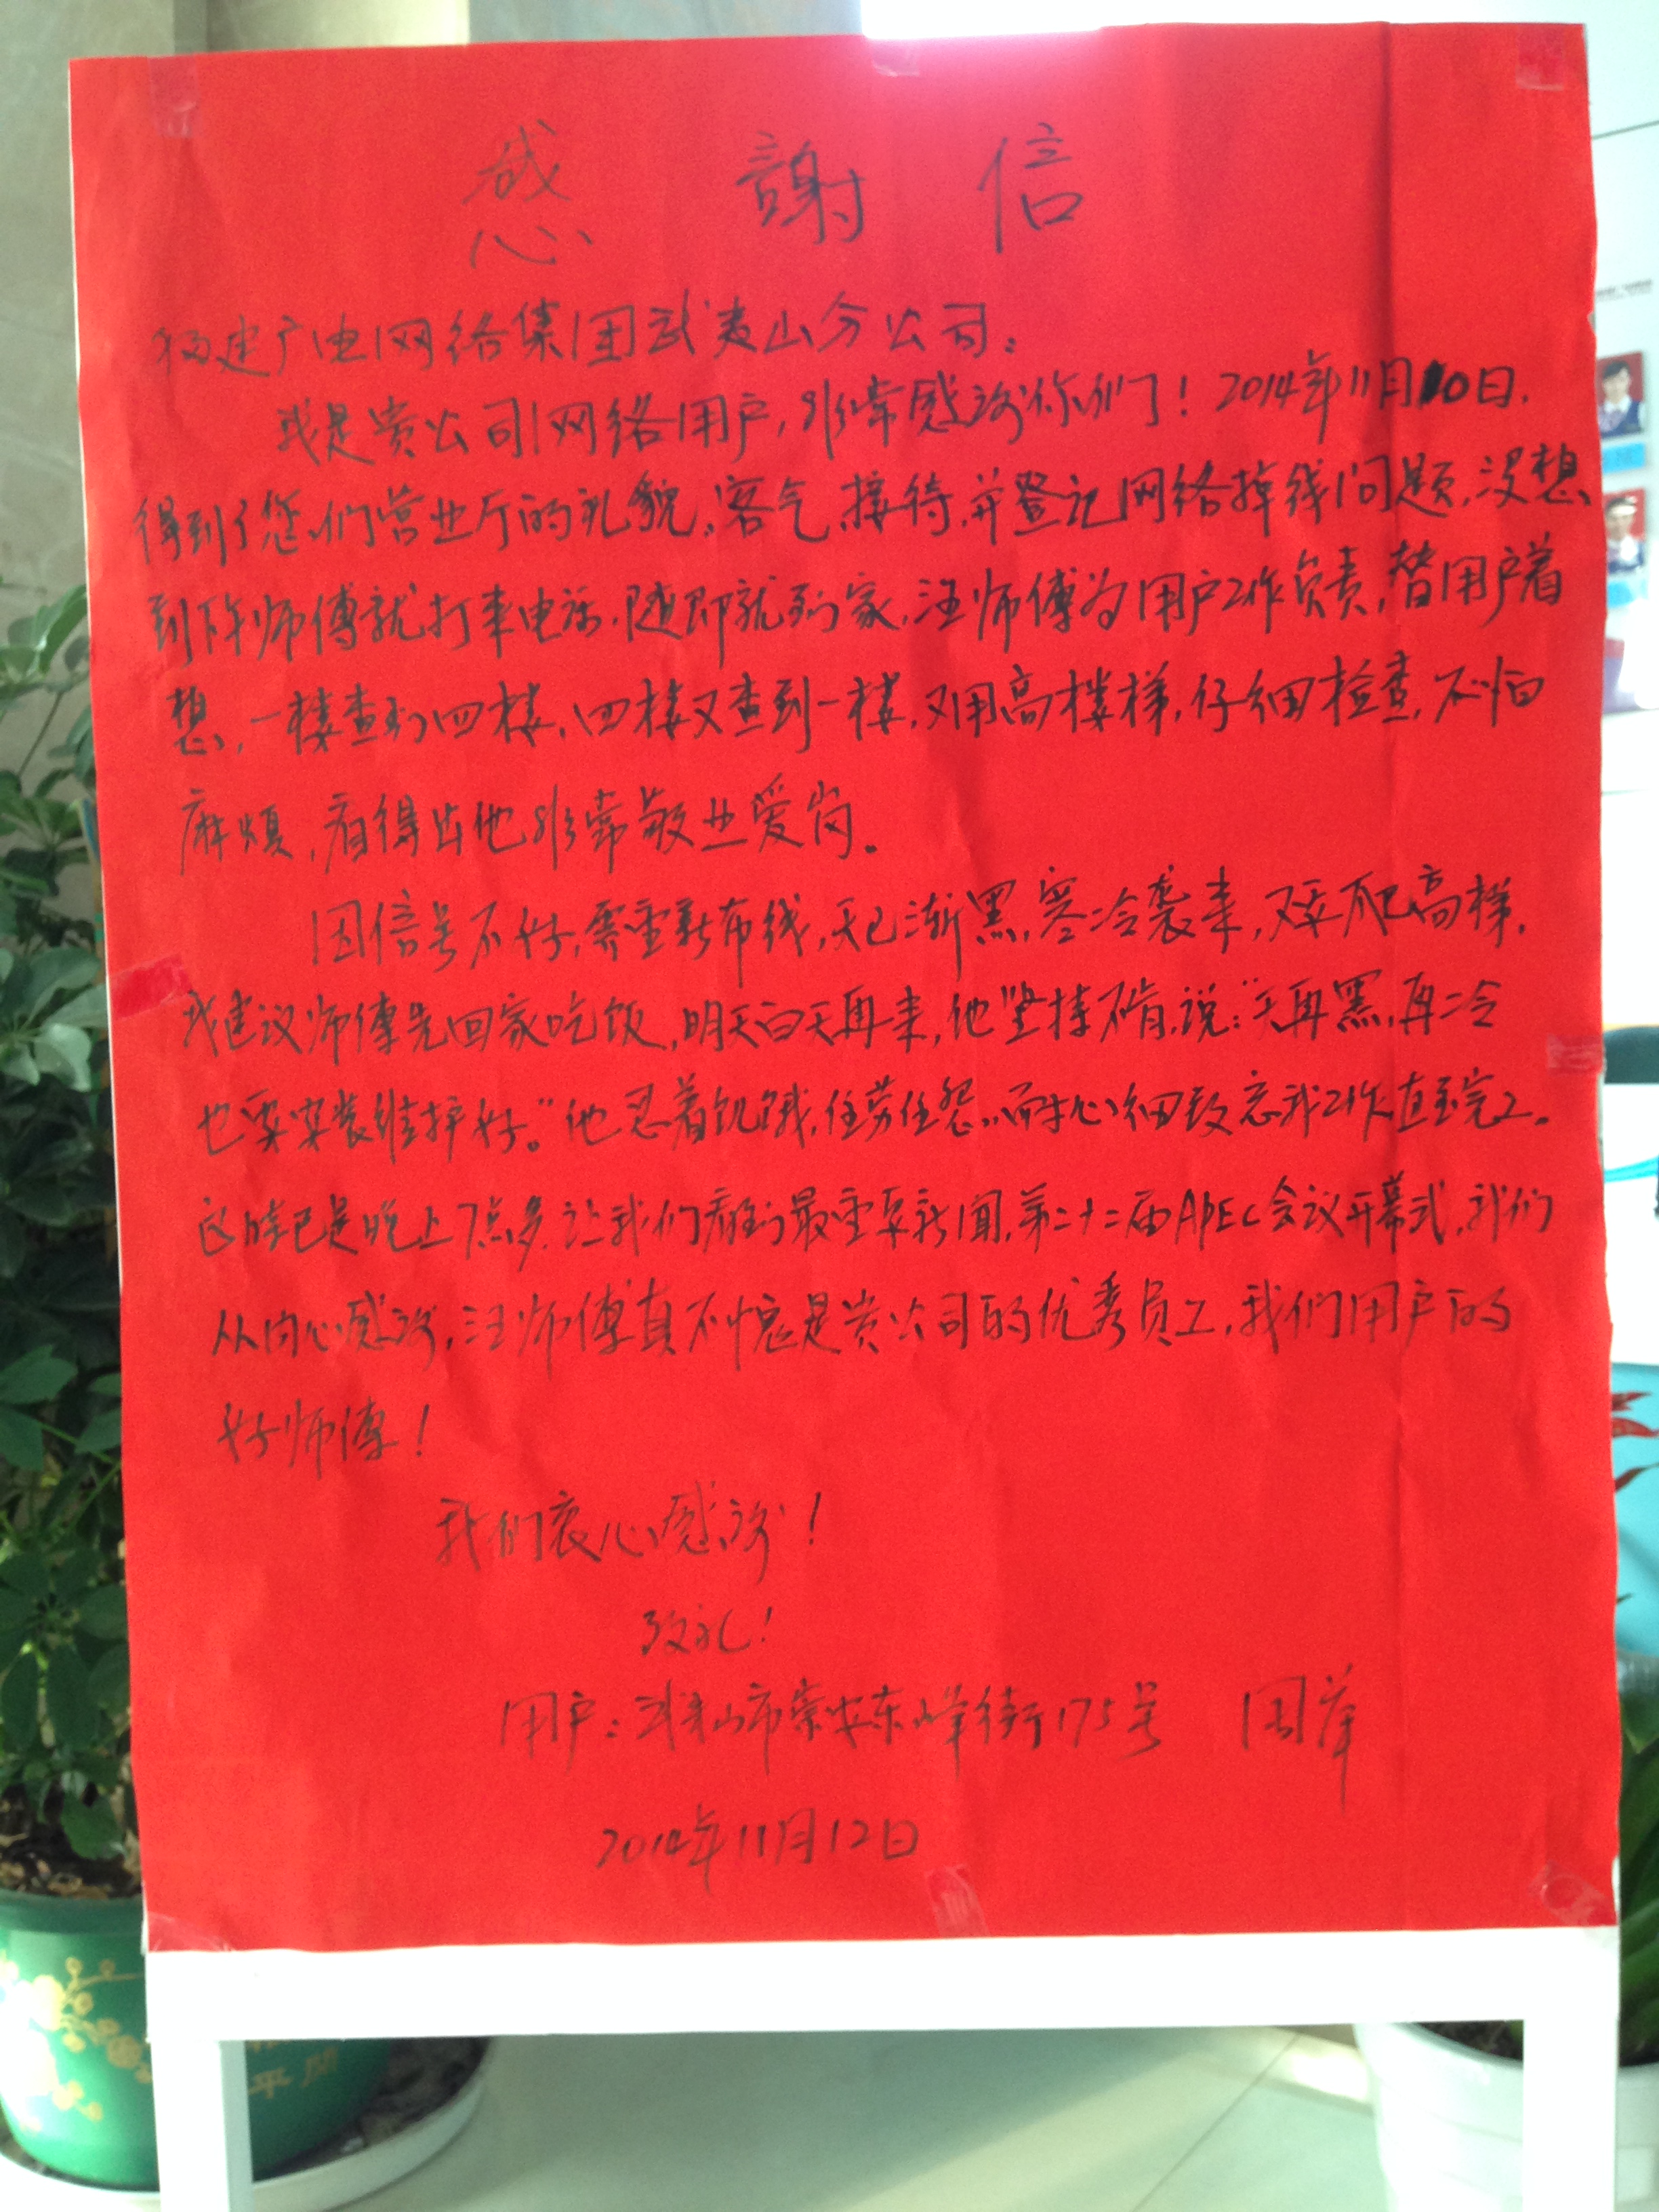 感謝信
福建广电网络集团武夷山分公司：
我是贵公司网络用户，非常感谢你们！2014年11月10日，
得到了您们营业厅的礼貌、客气接待，并登记网络掉线问题，没想
到下午师傅就打来电话，随即就到家，汪师傅为用户工作负责，替用户着
想，一楼查到四楼，四楼又查到一楼，又用高楼梯，仔细检查，不怕
麻烦，看得出他非常敬业爱岗。
因信号不好，需重新布线，天已渐黑，寒冷袭来，又要爬高梯，
我建议师傅先回家吃饭，明天白天再来，他坚持不肯，说：“天再黑，再冷
也要安装维护好。”他忍着饥饿，任劳任怨，耐心细致忘我工作直至完工。
这时已是晚上7点多，让我们看到最重要新闻，第二十二届APEC会议开幕式，我们
从内心感谢，汪师傅真不愧是贵公司的优秀员工，我们用户的
好师傅！
我们衷心感谢！
致礼！
用户：武夷山市崇安东峰街175号
2014年11月12日
平